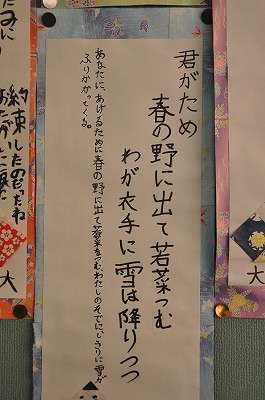 君がため
春の野に出て若菜つむ
わが衣手に雪は降りつつ
あなたに、あげるために春の野に出て若菜をつむ、わたしのそでに、しきりに雪が
ふりかかってくる。
約束したのだったね
大
大